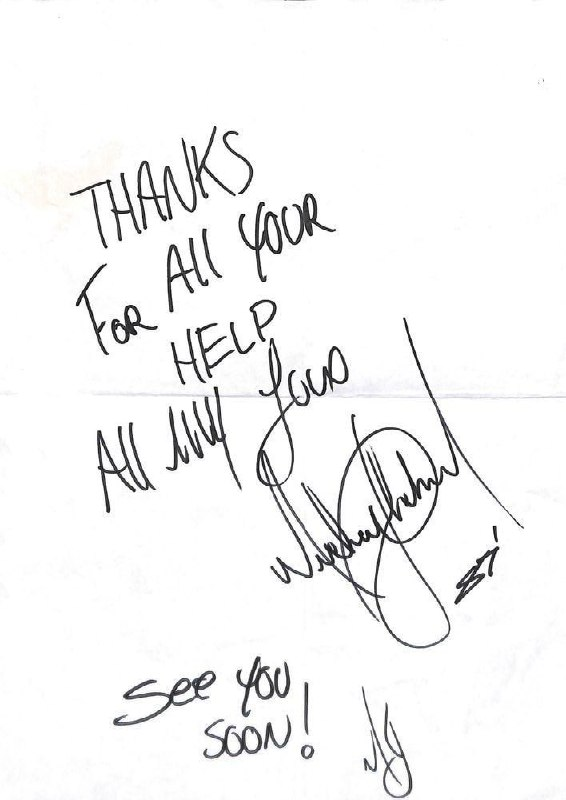 THANKS
FOR All YOUR
HELP
All My Love
Michael Jackson
87'
See YOU
SOON!
MJ